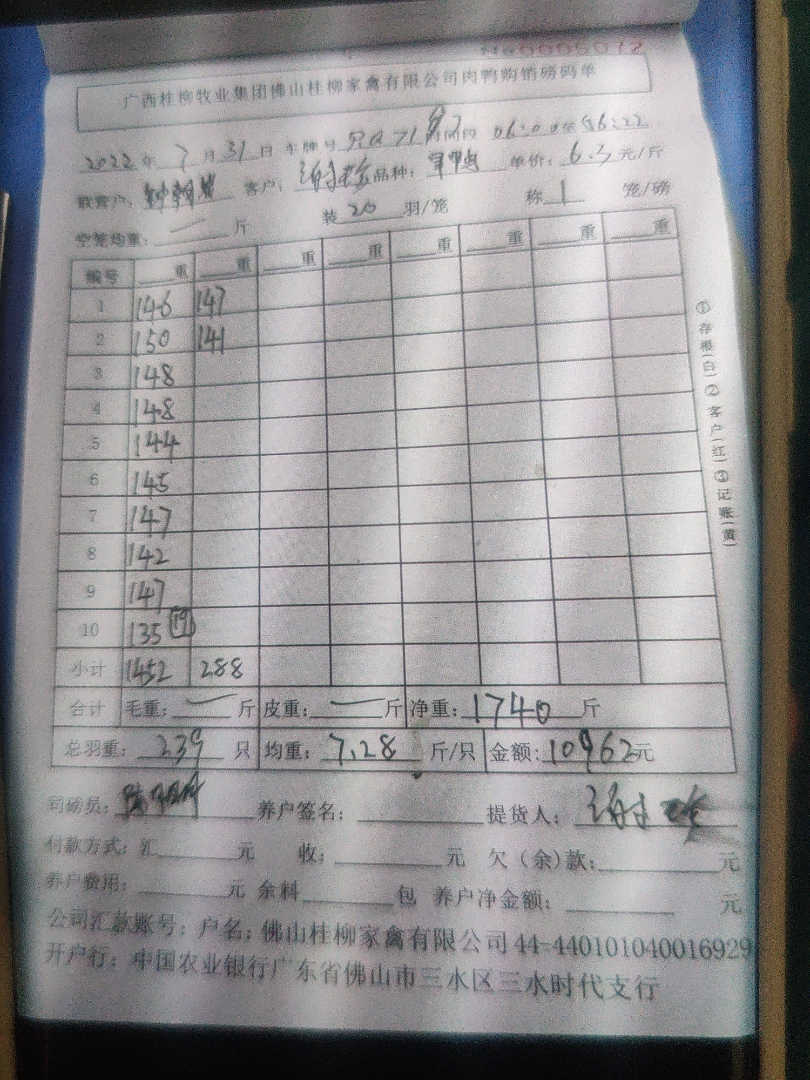 No 0005072
广西桂柳牧业集团佛山桂柳家禽有限公司肉鸭购销磅码单
2022年 7月 31日 车牌号 时间段 06:00至06:22
养户: 客户: 谢 品种: 鸭 单价: 6.3 元/斤
空笼均重: 一 斤 装 20 羽/笼 称 1 笼/磅
编号 重 重 重 重 重 重 重 重
1 146 147
2 150 141
3 148
4 148
5 144
6 145
7 147
8 142
9 147
10 135 19
小计 1452 288
合计 毛重: 一 斤 皮重: 一 斤 净重: 1740 斤
总羽重: 239 只 均重: 7.28 斤/只 金额: 10962元
司磅员: 养户签名: 提货人: 谢
付款方式: 汇 元 收: 元 欠(余)款: 元
养户费用: 元 余料 包 养户净金额: 元
公司汇款账号: 户名: 佛山桂柳家禽有限公司 44-440101040016929
开户行: 中国农业银行广东省佛山市三水区三水时代支行
①存根(白)②客户(红)③记账(黄)